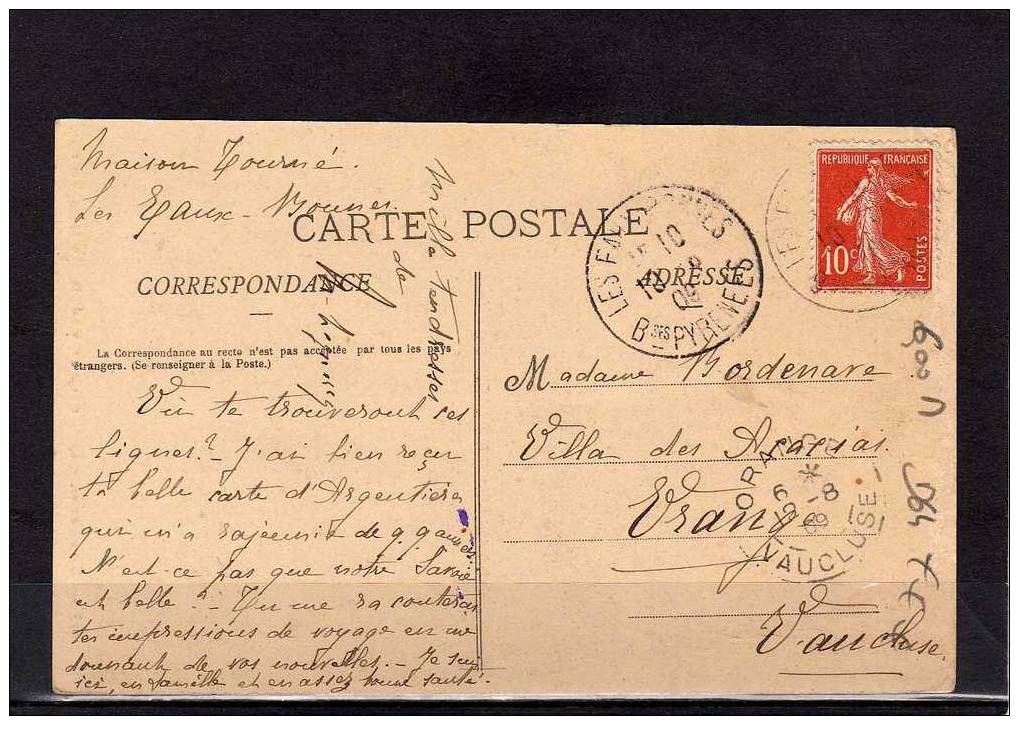 Maison Tourné.
Les Eaux-Bonnes
CARTE POSTALE
CORRESPONDANCE
ADRESSE
La Correspondance au recto n'est pas acceptée par tous les pays
étrangers. (Se renseigner à la Poste.)
Où te trouveront ces
lignes? J'ai bien reçu
ta belle carte d'Argentières
qui m'a rajeunie de qq années.
N'est-ce pas que notre Savoie
est belle? - Tu me raconteras
tes impressions de voyage en me
donnant de vos nouvelles. - Je suis
ici, en famille et en assez bonne santé.
Mille tendresses
de
Madame Bordenave
Villa des Acacias
Orange
Vaucluse.
REPUBLIQUE FRANÇAISE
10c
POSTES
LES EAUX-BONNES
10
18
09
Bses PYRENEES
LES E
ORANGE
6
19 -8
09
VAUCLUSE